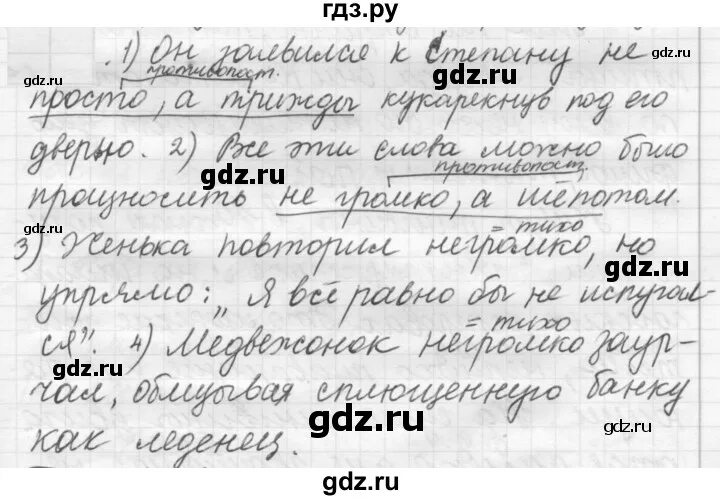 гдз.ру
1) Он заявился к Степану не
gdz.ru
противопост.
gdz.ru
просто, а трижды кукарекнув под его
gdz.ru
дверью. 2) Все эти слова можно было
gdz.ru
противопост.
произносить не громко, а шёпотом.
gdz.ru
= тихо
3) Женька повторил негромко, но
gdz.ru
упрямо: „Я всё равно бы не испугал-
gdz.ru
= тихо
ся". 4) Медвежонок негромко заур-
gdz.ru
чал, облизывая сплющенную банку
gdz.ru
как леденец.
gdz.ru
gdz.ru